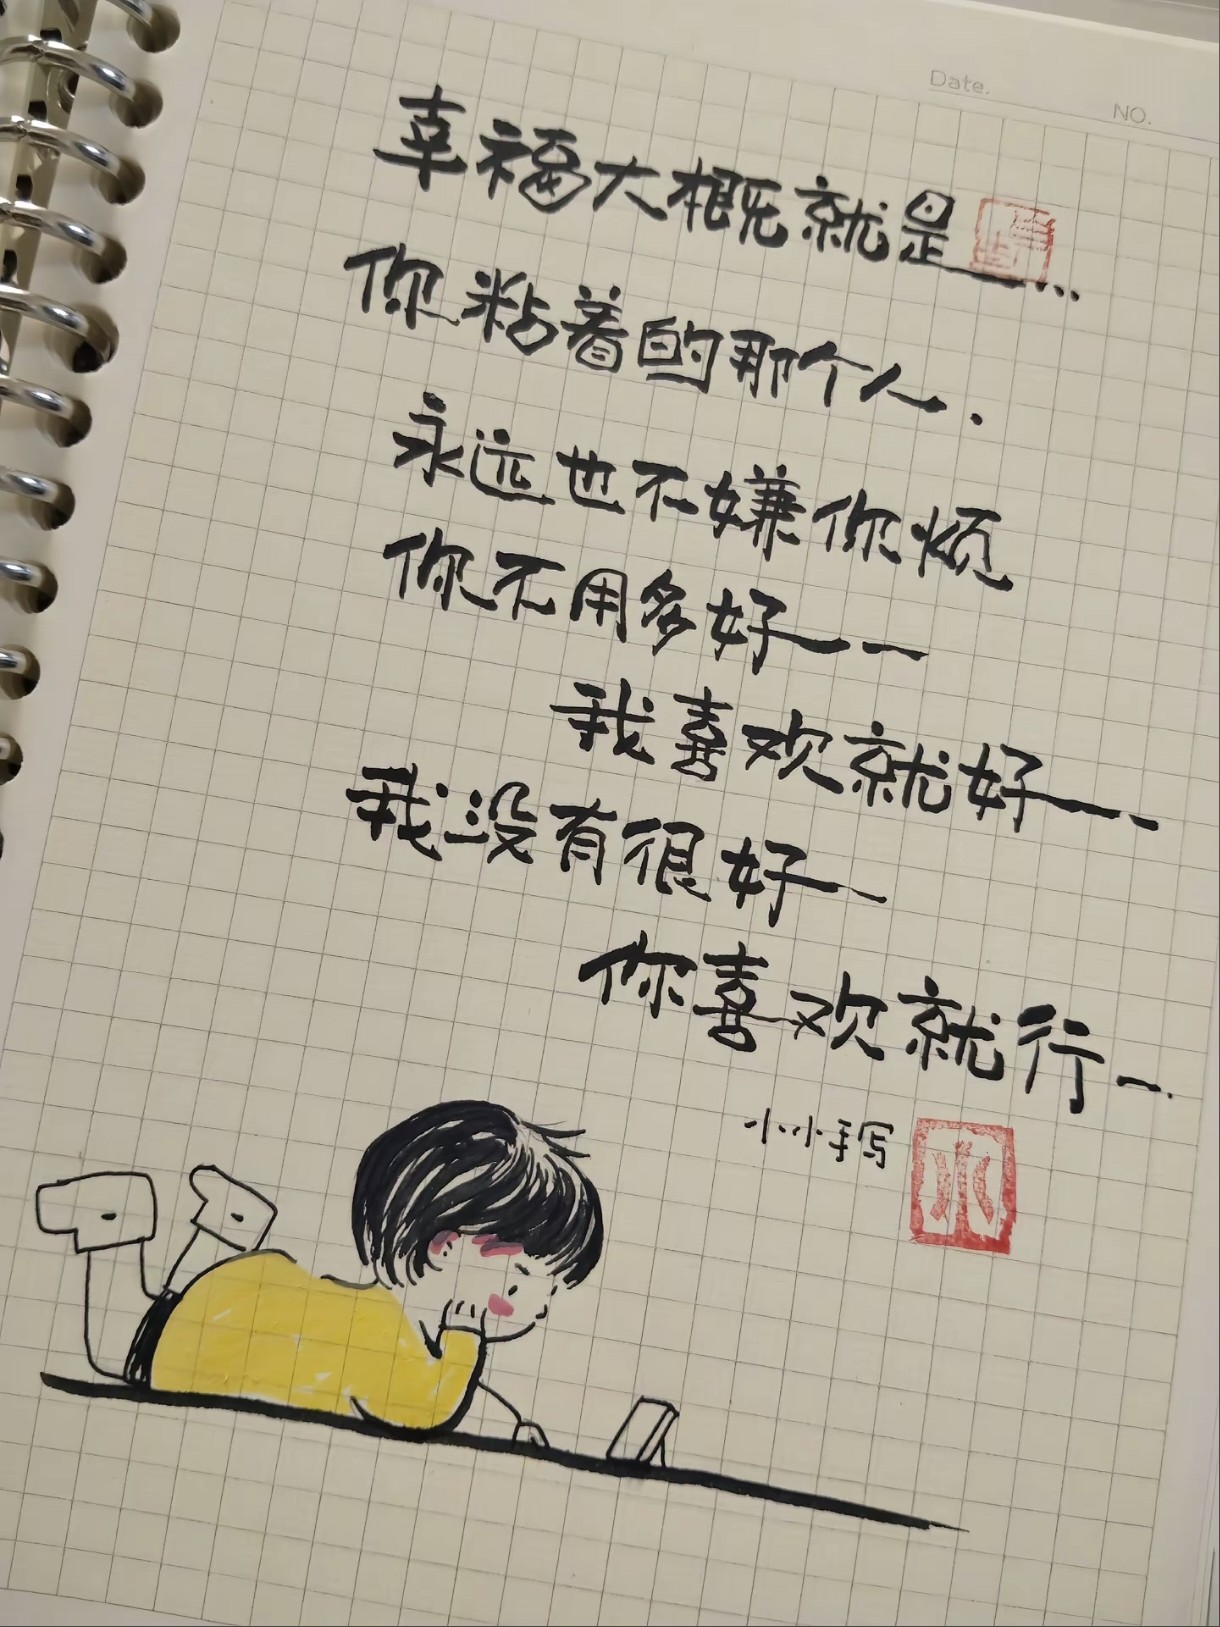 Date.
NO.
幸福大概就是...
你粘着的那个人.
永远也不嫌你烦
你不用多好一一
我喜欢就好一、
我没有很好一
你喜欢就行一.
小小手写